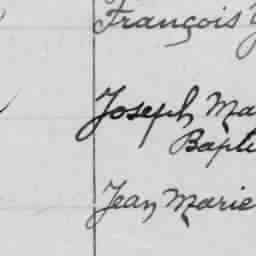 François
Joseph Ma
Bapti
Jean Marie